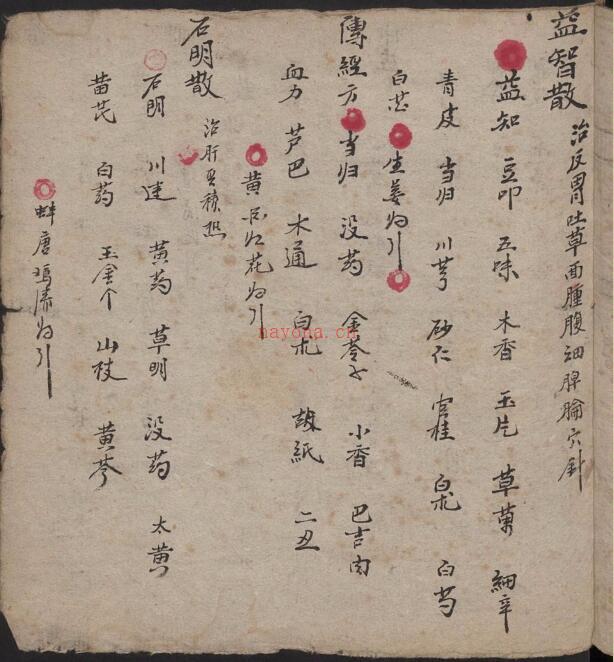 益智散
治反胃吐草面腫腹細脾腧穴針
益知 豆叩 五味 木香 玉片 草菓 細辛
青皮 当归 川芎 砂仁 官桂 白朮 白芍
白芷 生姜为引
傳經方 当归 没药 金苓子 小香 巴吉肉
血力 芦巴 木通 白朮 故紙 二丑
黄 红花为引
石明散
治肝
石明 川連 黄药 草明 没药 太黄
苗芪 白药 玉金个 山枝 黄芩
蚌唐 为引
nayona.cn